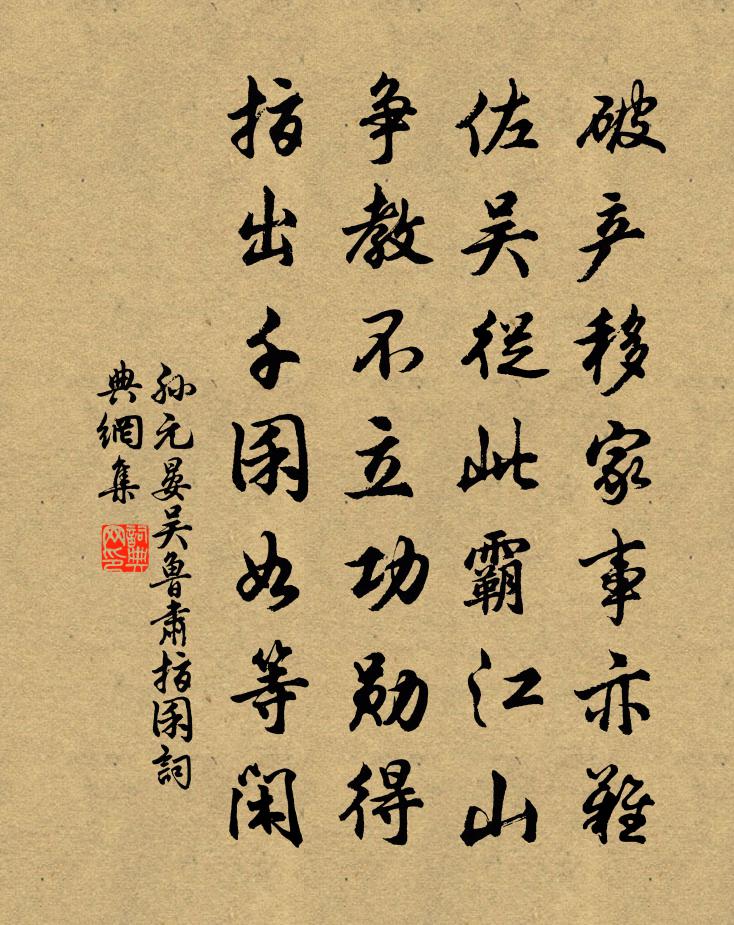 破产移家事亦難
佐吴從此霸江山
争教不立功勋得
指出千囷如等闲
孙元晏吴魯肅指囷詞
典網集
詞典
网印